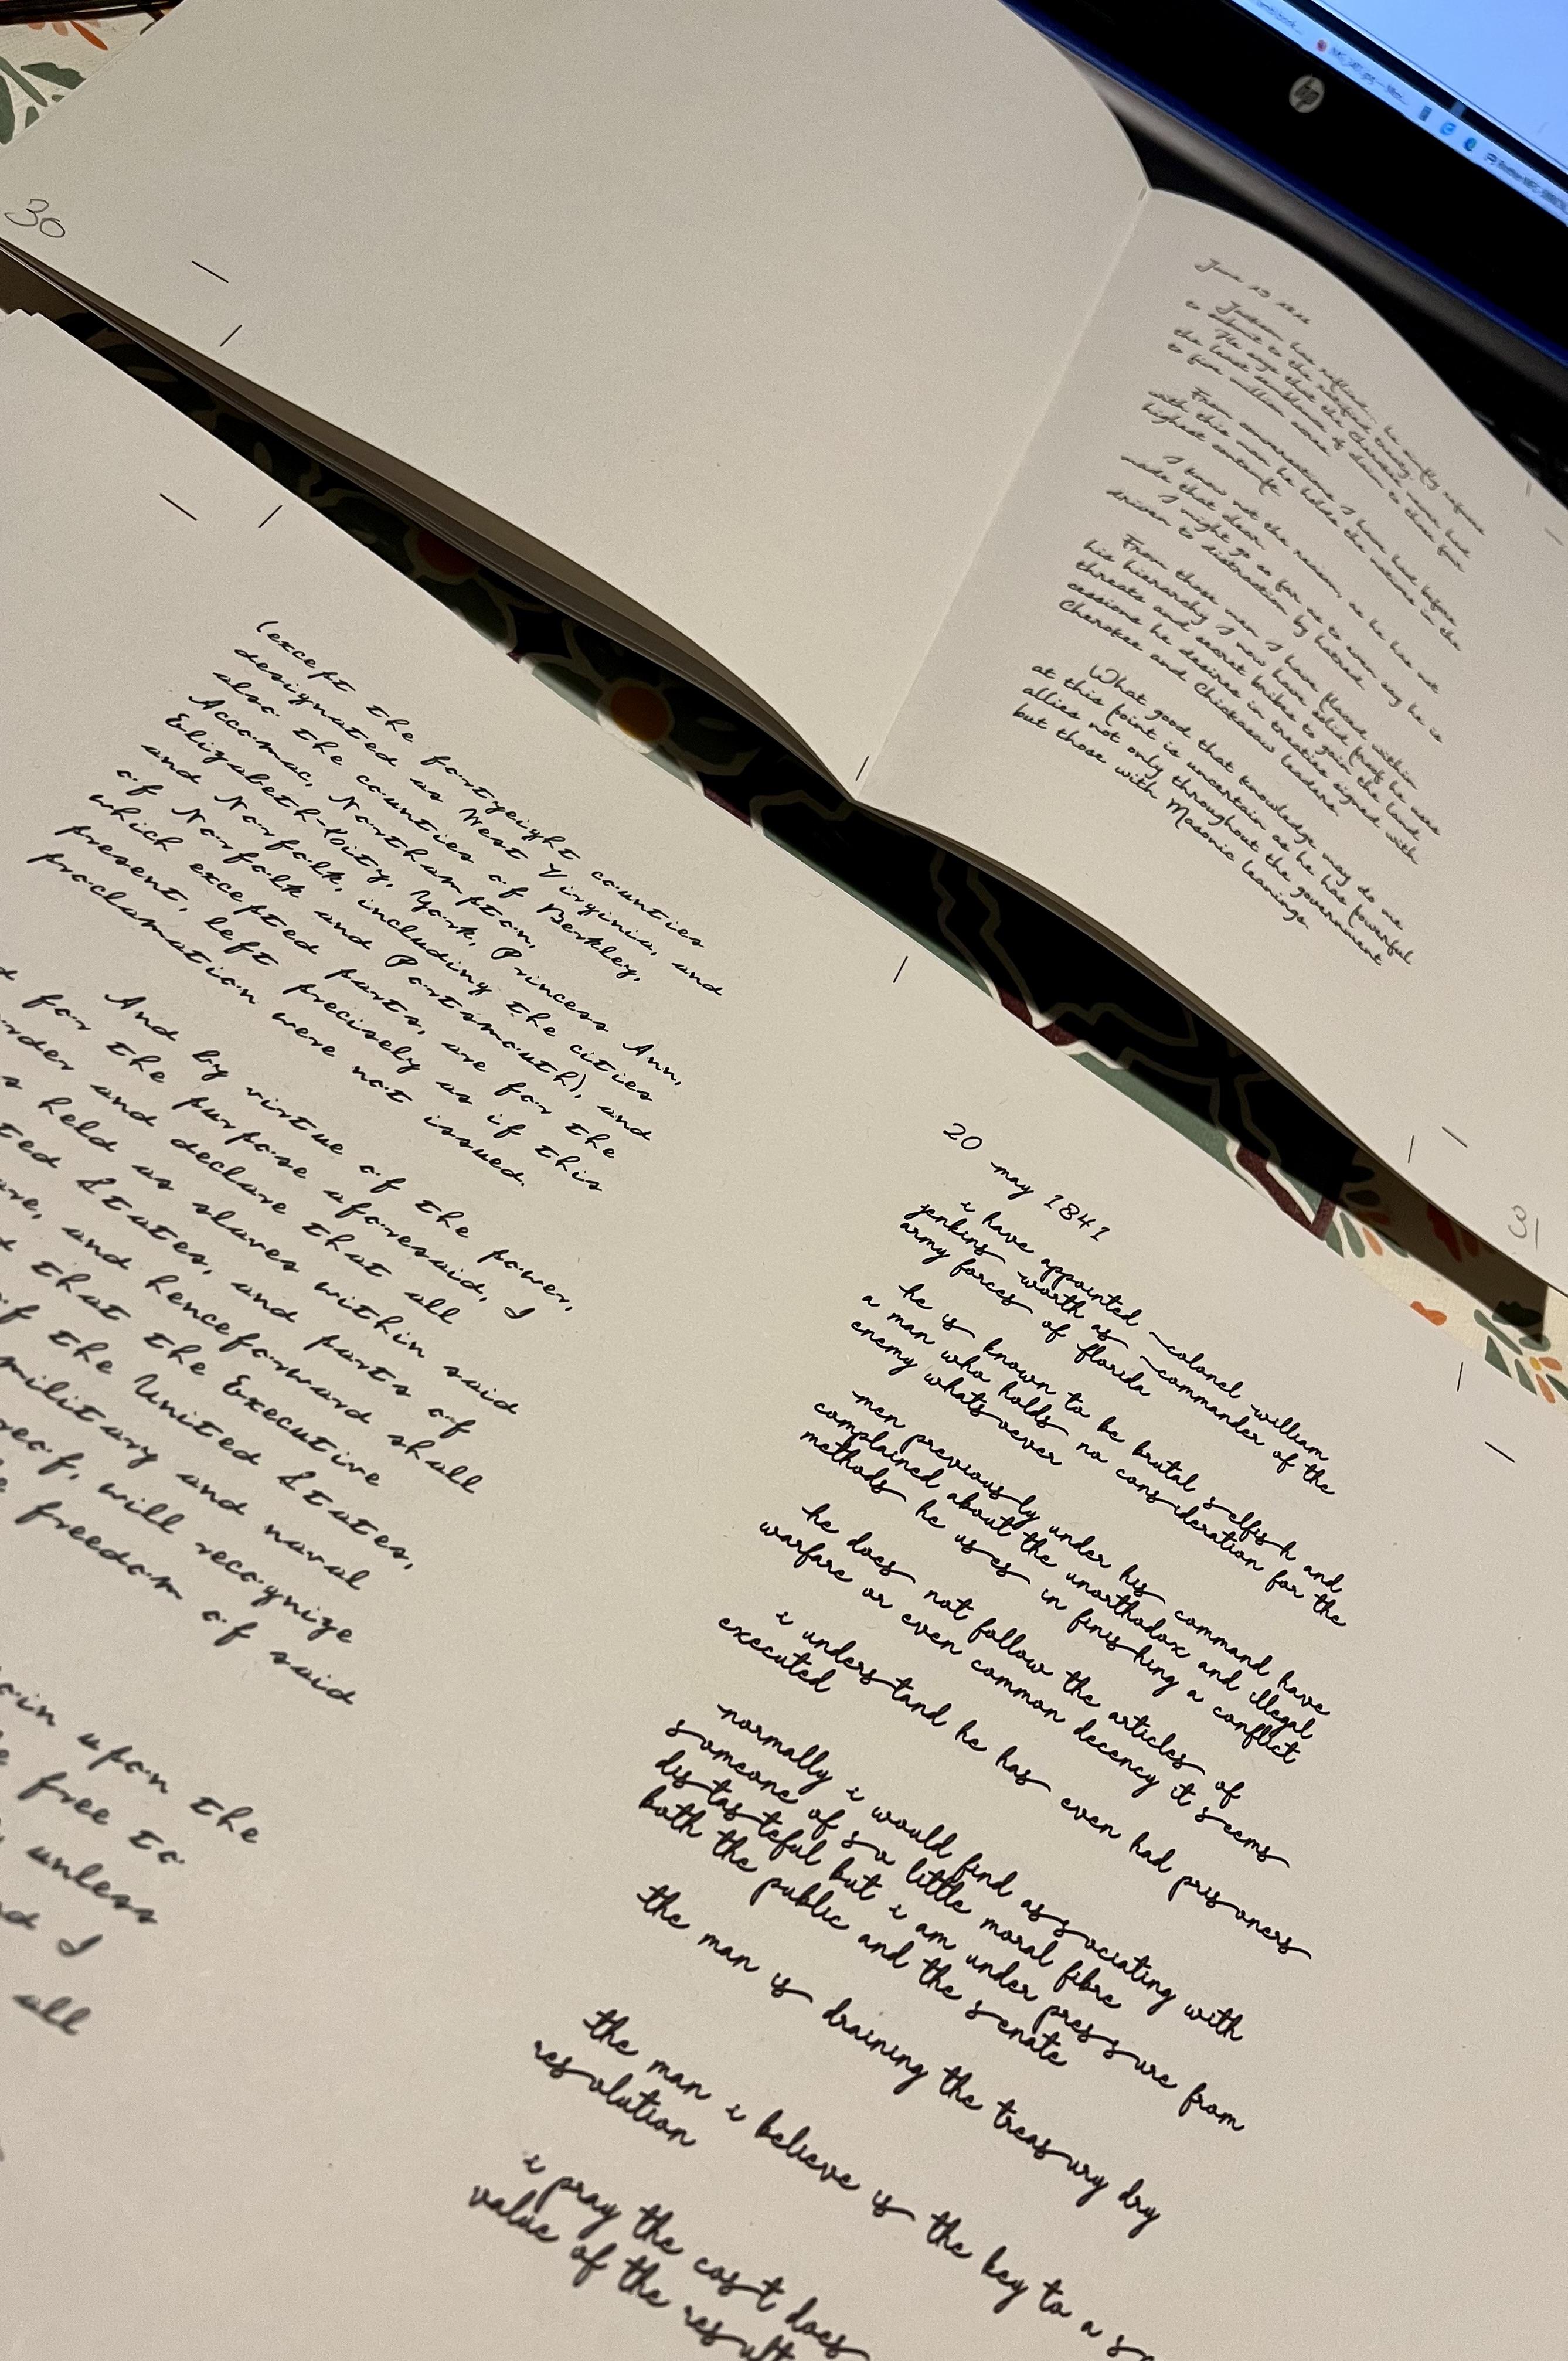 30
June 13
Jackson has ratified
to submit to the
He says that the Cherokee never had
the least semblance of claim to those four
to five million acres.
From conversations I have had before
with this man he holds the natives in the
highest contempt.
I know not the reason, as he has not
made that clear.
I might go so far as to even say he is
driven to distraction by hatred.
From those men I have placed within
his hierarchy I now have solid proof he uses
threats and secret bribes to gain the land
cessions he desires in treaties signed with
Cherokee and Chickasaw leaders.
What good that knowledge may do me
at this point is uncertain as he has powerful
allies not only throughout the government
but those with Masonic leanings.
31
(except the fortyeight counties
designated as West Virginia, and
also the counties of Berkley,
Accomac, Northampton,
Elizabeth-City, York, Princess Ann,
and Norfolk, including the cities
of Norfolk and Portsmouth), and
which excepted parts, are for the
present, left precisely as if this
proclamation were not issued.
And by virtue of the power,
for the purpose aforesaid, I
order and declare that all
held as slaves within said
States, and parts of
and henceforward shall
that the Executive
of the United States,
military and naval
will recognize
freedom of said
upon the
free to
unless
I
all
20 may 1841
i have appointed colonel william
jenkins worth as commander of the
army forces of florida
he is known to be brutal selfish and
a man who holds no consideration for the
enemy whatsoever
men previously under his command have
complained about the unorthodox and illegal
methods he uses in finishing a conflict
he does not follow the articles of
warfare or even common decency it seems
i understand he has even had prisoners
executed
normally i would find associating with
someone of so little moral fibre
distasteful but i am under pressure from
both the public and the senate
the man is draining the treasury dry
the man i believe is the key to a
resolution
i pray the cost does
value of the result